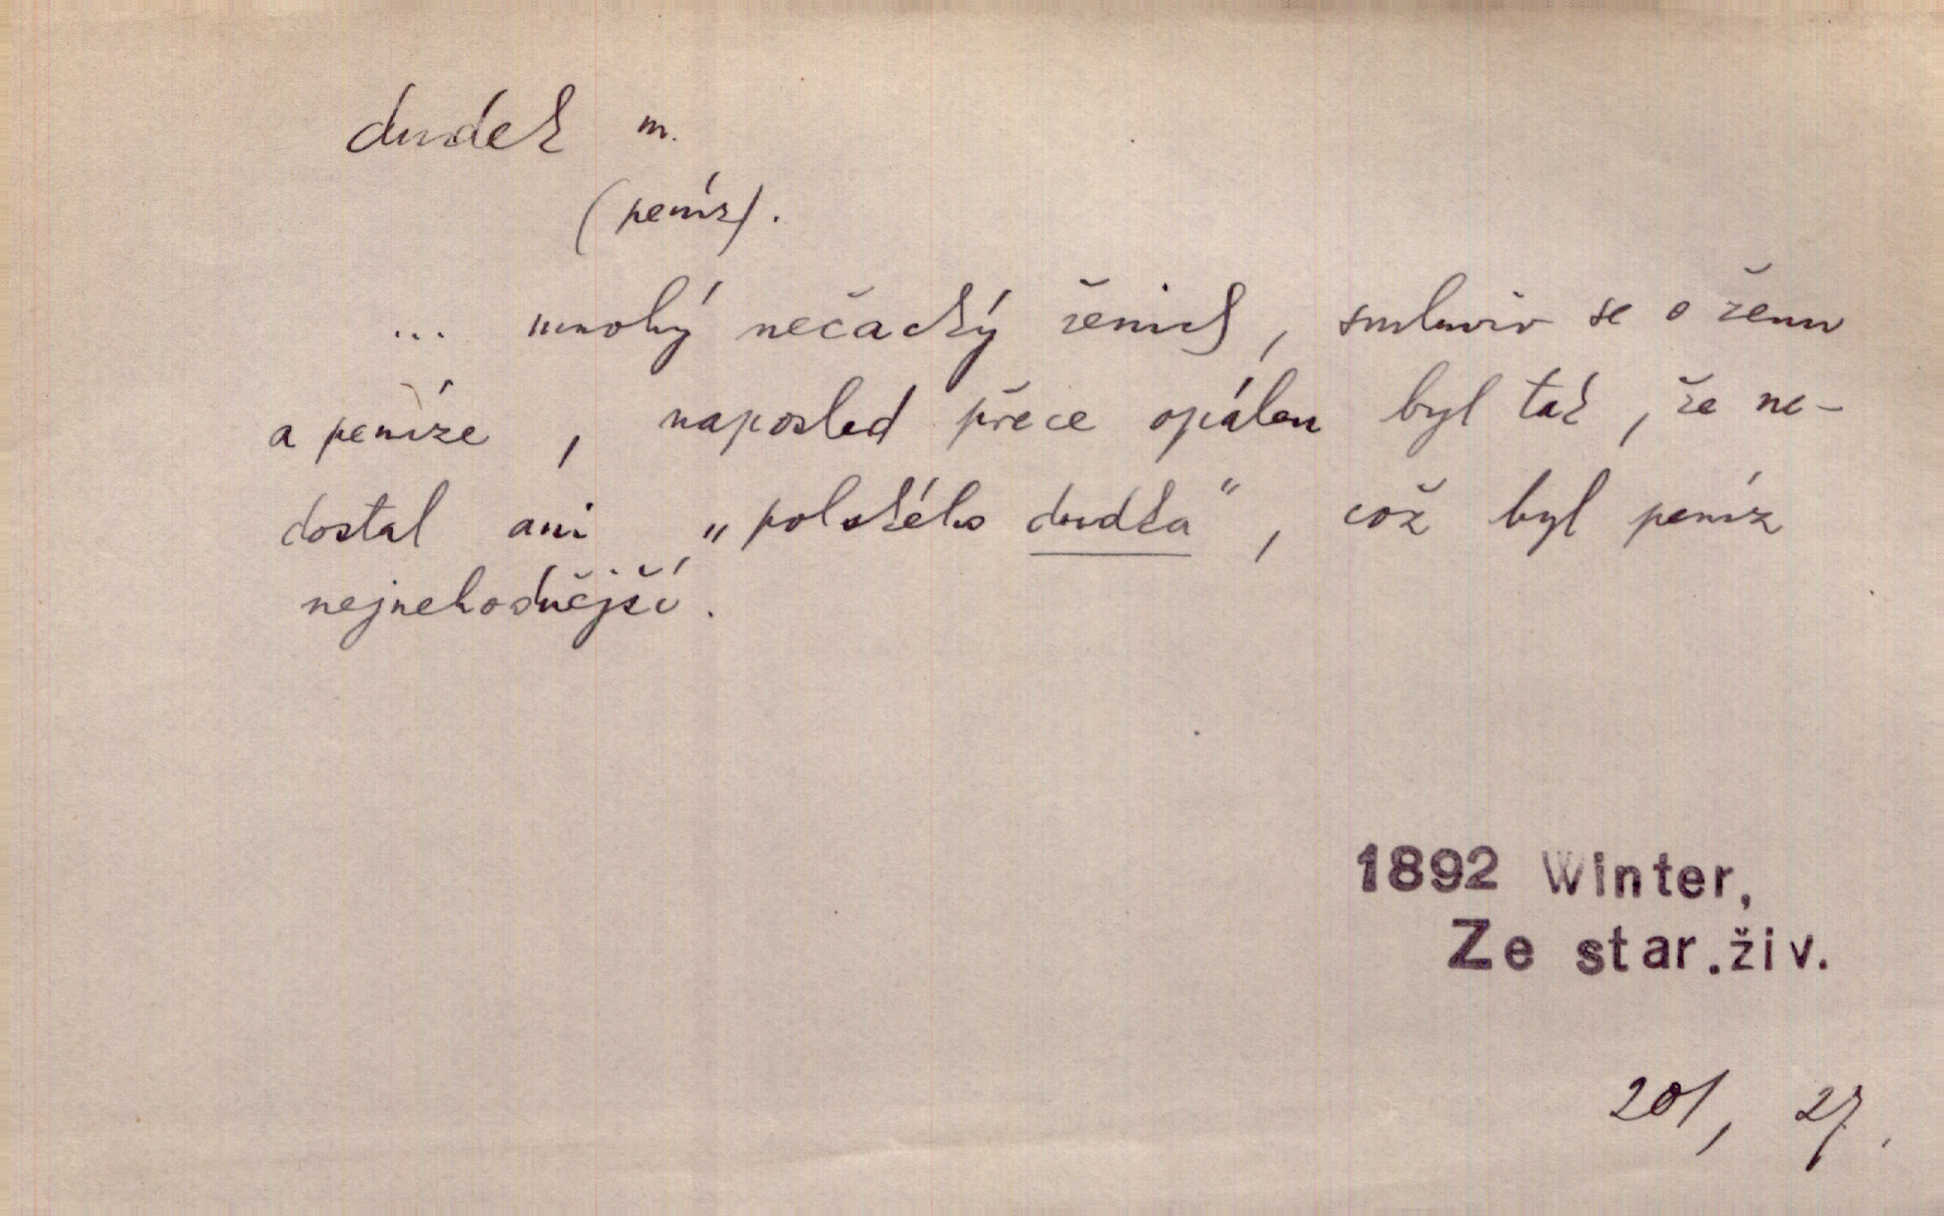 dudek m.
(peníz).
... mnohý nečacký ženich, smluviv se o ženu
a peníze, naposled přece opálen byl tak, že ne-
dostal ani „polského dudka“, což byl peníz
nejnehodnější.
1892 Winter,
Ze star.živ.
201, 27.